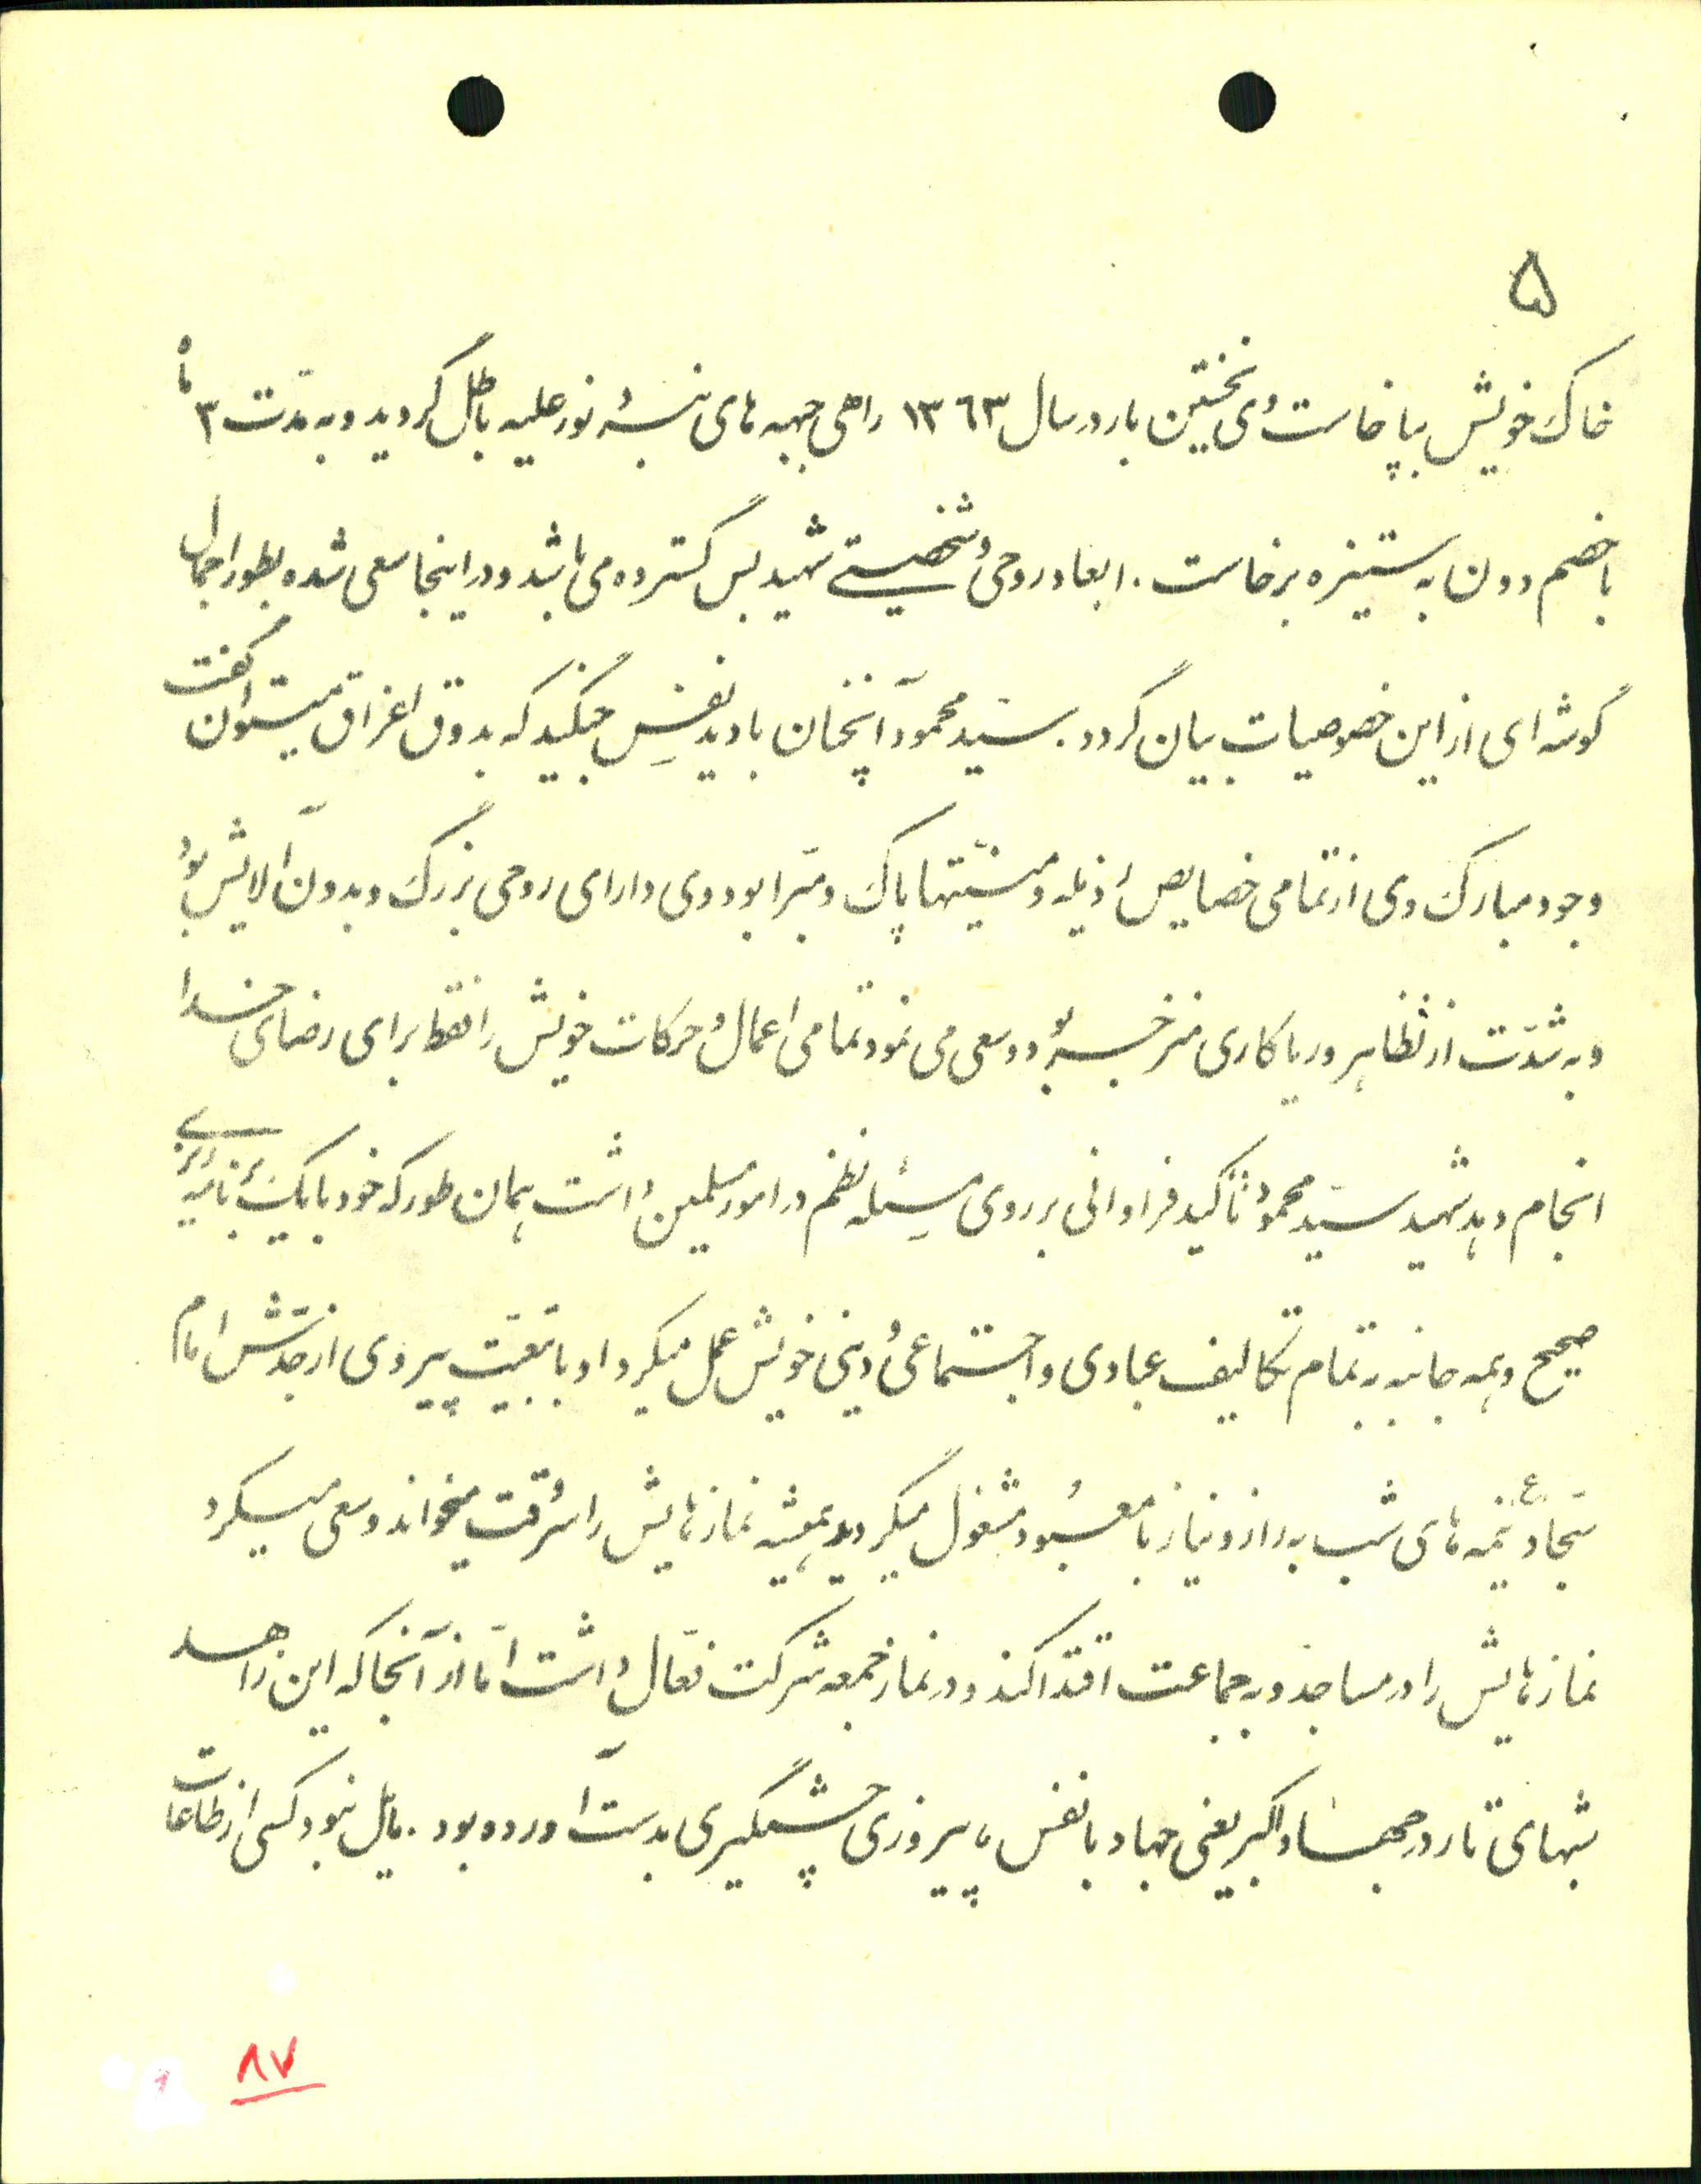 ۵
خاک خویش بپا خاست وی نخستین بار در سال ۱۳۶۳ راهی جبهه های نبرد نور علیه باطل گردید و به مدّت ۳ ماه
با خصم دون به ستیزه برخاست. ابعاد روحی و شخصیتی شهید بس گسترده می باشد و در اینجا سعی شده بطور اجمال
گوشه ای از این خصوصیات بیان گردد. سیّد محمود آنچنان با دیو نفسِ جنگید که بدون اغراق میتوان گفت
وجود مبارک وی از تمامی خصایص رذیله و منیّتها پاک و مبّرا بود وی دارای روحی بزرگ و بدون آلایش بود
و به شدّت از تظاهر و ریا کاری منزجر بود و سعی می نمود تمامی اعمال و حرکات خویش را فقط برای رضای خدا
انجام دهد شهید سیّد محمود تأکید فراوانی بر روی مسئله نظم در امور مسلمین داشت همان طور که خود با یک برنامه ریزی
صحیح و همه جانبه به تمام تکالیف عبادی و اجتماعی و دینی خویش عمل میکرد او با تبعیّت پیروی از جدّش امام
سجّاد ع نیمه های شب به راز و نیاز با معبود مشغول میگردید همیشه نمازهایش را سروقت میخواند و سعی میکرد
نمازهایش را در مساجد و به جماعت اقتدا کند و در نماز جمعه شرکت فعّال داشت امّا از آنجا که این زاهد
شبهای تار در جهاد اکبر یعنی جهاد با نفس، پیروزی چشمگیری بدست آورده بود. مایل نبود کسی از طاعات
۸۷